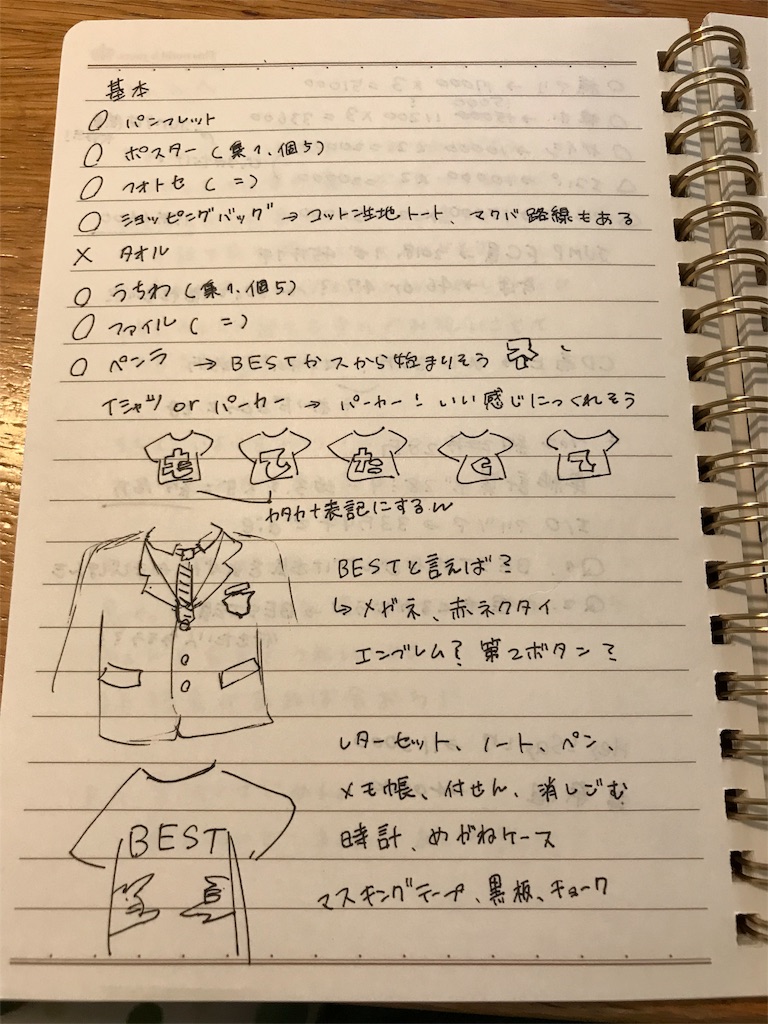 基本
○ パンフレット
○ ポスター (集1、個5)
○ フォトセ ( 〃 )
○ ショッピングバッグ → コットン生地トート、マクバ路線もある
× タオル
○ うちわ (集1、個5)
○ ファイル ( 〃 )
○ ペンラ → BESTかスから始まりそう
Tシャツ or パーカー → パーカー! いい感じにつくれそう
カタカナ表記にするw
BESTと言えば?
↳ メガネ、赤ネクタイ
エンブレム? 第2ボタン?
レターセット、ノート、ペン、
メモ帳、付せん、消しごむ
BEST
時計、めがねケース
マスキングテープ、黒板、チョーク